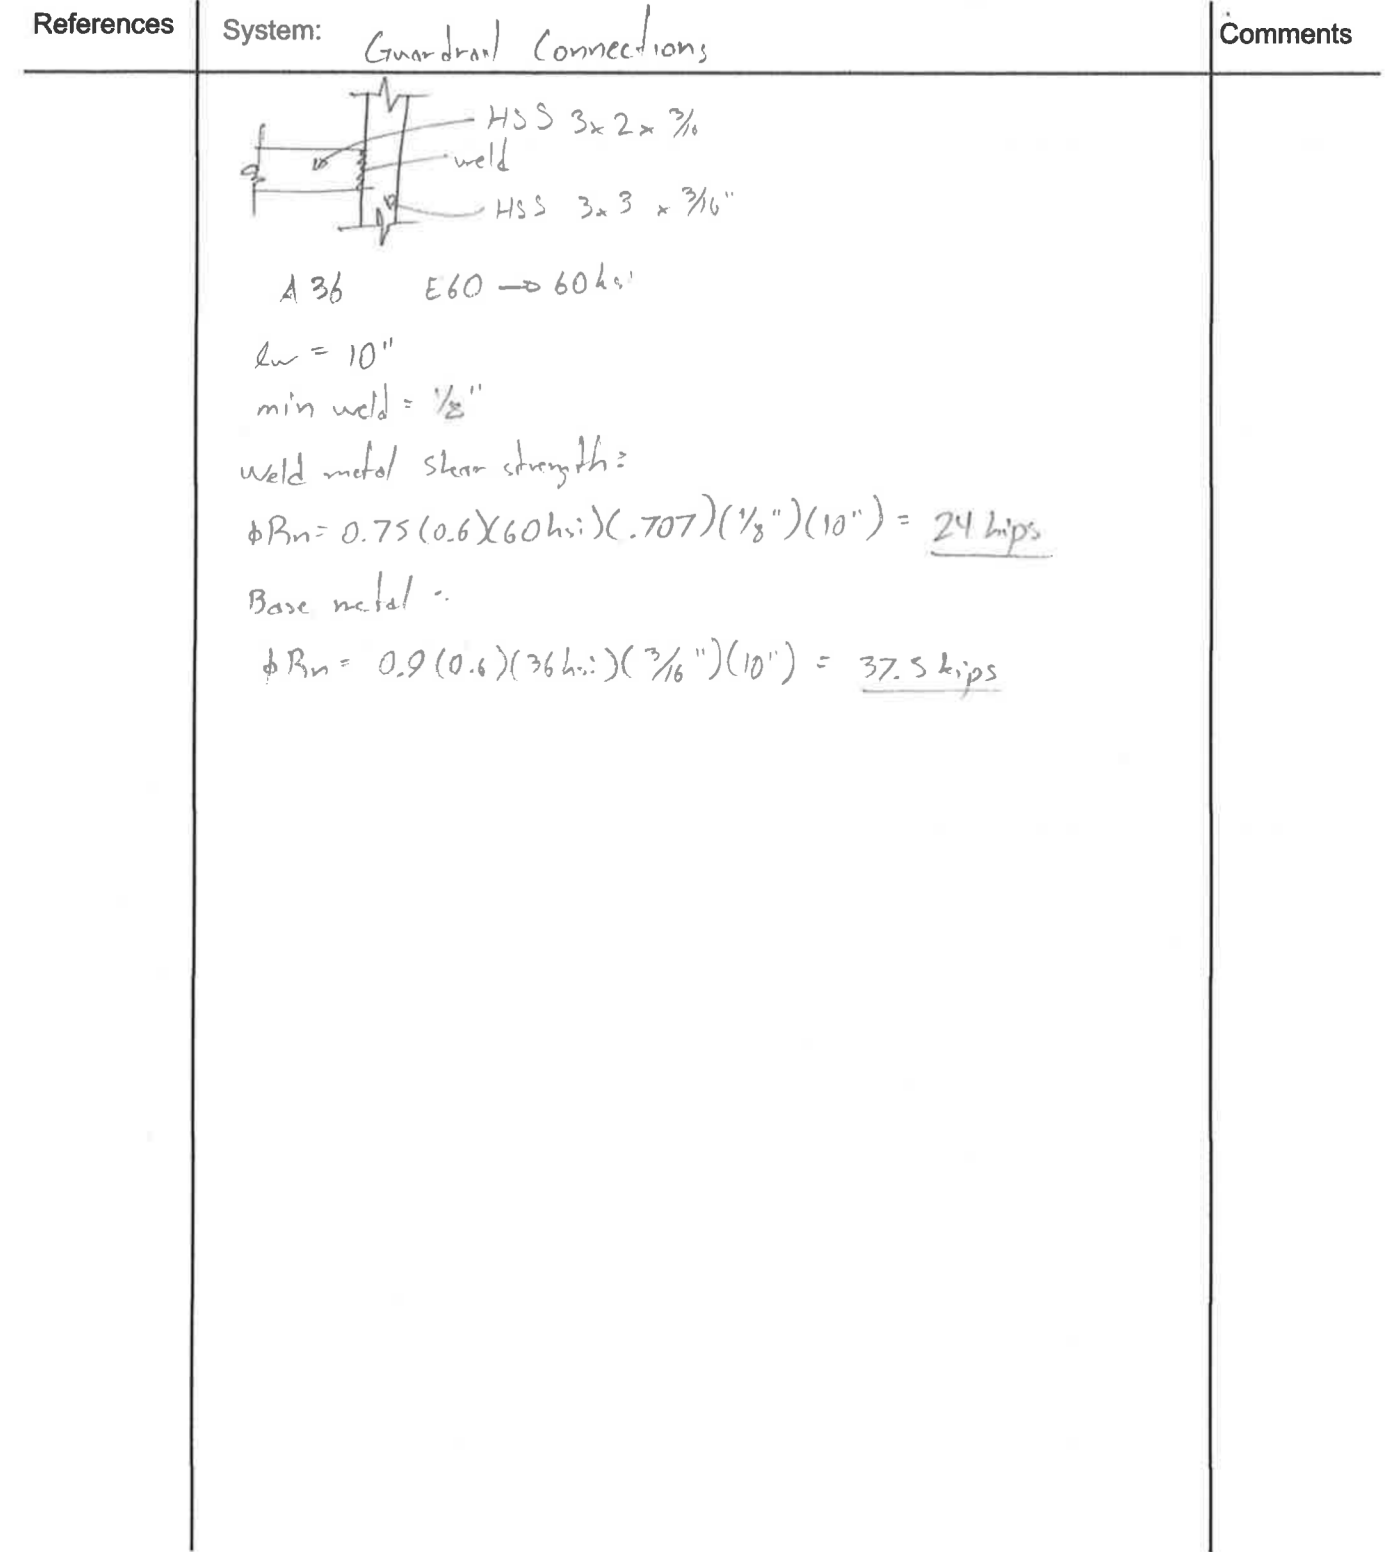 References
System: Guardrail Connections
Comments
HSS 3x2x 3/16
weld
HSS 3x3 x 3/16"
A36 E60 → 60ksi
lw = 10"
min weld = 1/8"
Weld metal shear strength:
ϕRn = 0.75(0.6)(60ksi)(.707)(1/8")(10") = 24 kips
Base metal :
ϕRn = 0.9(0.6)(36ksi)(3/16")(10") = 37.5 kips